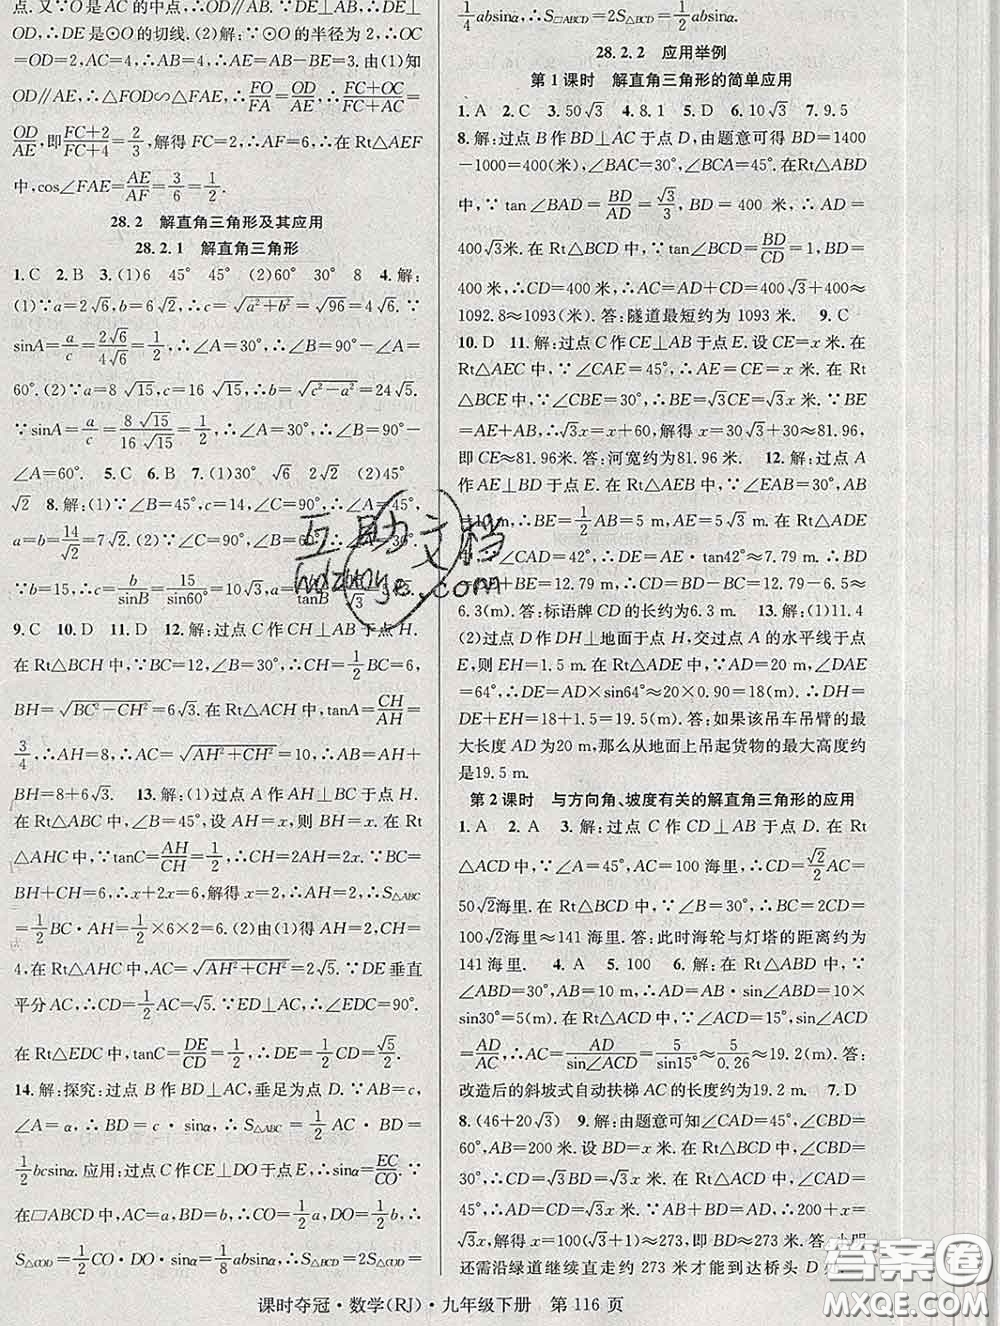 点. 又∵O是AC的中点,∴OD∥AF. ∵DE⊥AF,∴OD⊥
DE,∴DE是⊙O的切线. (2)解:∵⊙O的半径为2,∴OC
=OD=2,AC=4,∴AB=AC=4,∴AE=AB-BE=3. 由(1)知
OD∥AE,∴△FOD∽△FAE,∴FO/FA=OD/AE,∴(FC+OC)/(FC+AC)=
OD/AE,即(FC+2)/(FC+4)=2/3,解得FC=2,∴AF=6,∴在Rt△AEF
中,cos∠FAE=AE/AF=3/6=1/2.
28.2 解直角三角形及其应用
28.2.1 解直角三角形
1.C 2.B 3.(1)6 45° 45° (2)60° 30° 8 4.解:
(1)∵a=2√6,b=6√2,∴c=√(a²+b²)=√96=4√6. ∵
sinA=a/c=2√6/4√6=1/2,∴∠A=30°,∴∠B=90°-∠A=
60°. (2)∵a=8√15,c=16√15,∴b=√(c²-a²)=24√5.
∵sinA=a/c=8√15/16√15=1/2,∴∠A=30°,∴∠B=90°-
∠A=60°. 5.C 6.B 7.(1)30° √6 2√2 (2)45°
√2 8.解:(1)∵∠B=45°,c=14,∴∠A=45°,
a=b=14/√2=7√2. (2)∵
∵b=15,∴c=b/sinB=15/sin60°=
9.C 10.D 11.D 12.解:过点C作CH⊥AB于点H.
在Rt△BCH中,∵BC=12,∠B=30°,∴CH=1/2BC=6,
BH=√(BC²-CH²)=6√3. 在Rt△ACH中,tanA=CH/AH=
3/4,∴AH=8,∴AC=√(AH²+CH²)=10,∴AB=AH+
BH=8+6√3. 13.解:(1)过点A作AH⊥BC于点H.
在Rt△ABC中,AH=BH,设AH=x,则BH=x. 在Rt
△AHC中,∵tanC=AH/CH=1/2,∴CH=2AH=2x. ∵BC=
BH+CH=6,∴x+2x=6,解得x=2,∴AH=2,∴S△ABC
=1/2BC·AH=1/2×6×2=6. (2)由(1)得AH=2,CH=
4,在Rt△AHC中,AC=√(AH²+CH²)=2√5. ∵DE垂直
平分AC,∴CD=1/2AC=√5. ∵ED⊥AC,∴∠EDC=90°.
在Rt△EDC中,tanC=DE/CD=1/2,∴DE=1/2CD=√5/2.
14.解:探究:过点B作BD⊥AC,垂足为点D. ∵AB=c,
∠A=α,∴BD=c·sinα,∴S△ABC=1/2AC·BD=
1/2bcsinα. 应用:过点C作CE⊥DO于点E,∴sinα=EC/CO. ∵
在□ABCD中,AC=a,BD=b,∴CO=1/2a,DO=1/2b,∴
S△COD=1/2CO·DO·sinα=1/8absinα,∴S△BCD=2S△COD=
1/4absinα,∴S□ABCD=2S△BCD=1/2absinα.
28.2.2 应用举例
第1课时 解直角三角形的简单应用
1.A 2.C 3.50√3 4.8.1 5.D 6.10√3 7.9.5
8.解:过点B作BD⊥AC于点D,由题意可得BD=1400
-1000=400(米),∠BAC=30°,∠BCA=45°. 在Rt△ABD
中,∵tan∠BAD=BD/AD=√3/3,BD=400米,∴AD=
400√3米. 在Rt△BCD中,∵tan∠BCD=BD/CD=1,∴CD=
400米,∴AC=AD+CD=400√3+400≈
1092.8≈1093(米). 答:隧道最短约为1093米. 9.C
10.D 11.解:过点C作CE⊥AB于点E. 设CE=x米. 在
Rt△AEC中,∵∠CAE=45°,∴AE=CE=x米. 在Rt△
BCE中,∵∠CBE=30°,∴BE=√3CE=√3x米. ∵BE=
AE+AB,∴√3x=x+60,解得x=30√3+30≈81.96,
即CE≈81.96米. 答:河宽约为81.96米. 12.解:过点A
作AE⊥BD于点E. 在Rt△ABE中,∵∠EAB=30°,AB=
10 m,∴BE=1/2AB=5 m,AE=5√3 m.
∠CAD=42°,∴DE=AE·tan42°≈7.79 m,
+BE=12.79 m,∴CD=BD-BC=12.79-6.5≈
6.3(m). 答:标语牌CD的长约为6.3 m. 13.解:(1)11.4
(2)过点D作DH⊥地面于点H,交过点A的水平线于点
E,则EH=1.5 m. 在Rt△ADE中,AD=20 m,∠DAE
=64°,∴DE=AD×sin64°≈20×0.90≈18(m),∴DH=
DE+EH=18+1.5=19.5(m). 答:如果该吊车吊臂的最
大长度AD为20 m,那么从地面上吊起货物的最大高度约
是19.5 m.
第2课时 与方向角、坡度有关的解直角三角形的应用
1.A 2.A 3.解:过点C作CD⊥AB于点D. 在Rt△
ACD中,∵∠A=45°,AC=100海里,∴CD=√2/2AC=
50√2海里. 在Rt△BCD中,∵∠B=30°,∴BC=2CD=
100√2海里≈141海里. 答:此时海轮与灯塔的距离约为
141海里. 4.A 5.100 6.解:在Rt△ABD中,∵
∠ABD=30°,AB=10 m,∴AD=AB·sin∠ABD=10×
sin30°=5(m). 在Rt△ACD中,∵∠ACD=15°,sin∠ACD
=AD/AC,∴AC=AD/sin∠ACD=5/sin15°≈5/0.26≈19.2(m). 答:
改造后的斜坡式自动扶梯AC的长度约为19.2 m. 7.D
8.(46+20√3) 9.解:由题意可知∠CAD=45°,∠CBD=
60°,AB=200米. 设BD=x米. 在Rt△BCD中,∵∠CBD=
60°,∴CD=√3BD=√3x米. 在Rt△ACD中,∵∠CAD=
45°,∴AD=CD=√3x米. ∵AD=AB+BD,∴200+x=
√3x,解得x=100(√3+1)≈273,即BD≈273米. 答:小明
还需沿绿道继续直走约273米才能到达桥头D
课时夺冠·数学(RJ)·九年级下册 第116页
互助文档
hdzuoye.com
答案圈
MXQE.COM